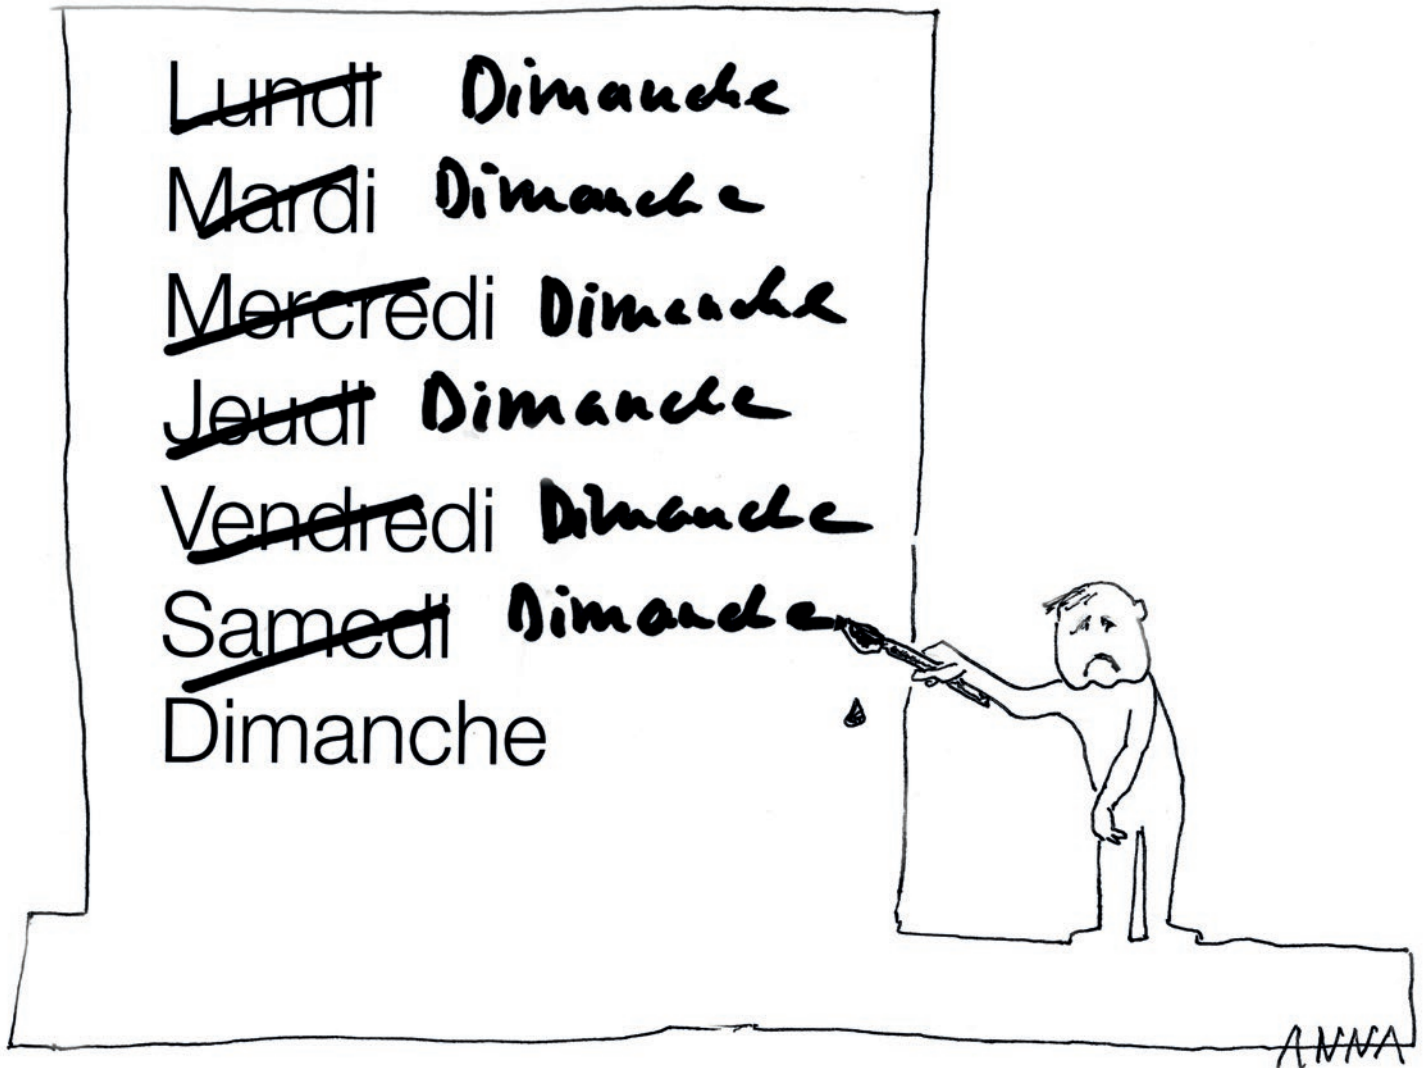 Lundi Dimanche
Mardi Dimanche
Mercredi Dimanche
Jeudi Dimanche
Vendredi Dimanche
Samedi Dimanche
Dimanche
ANNA